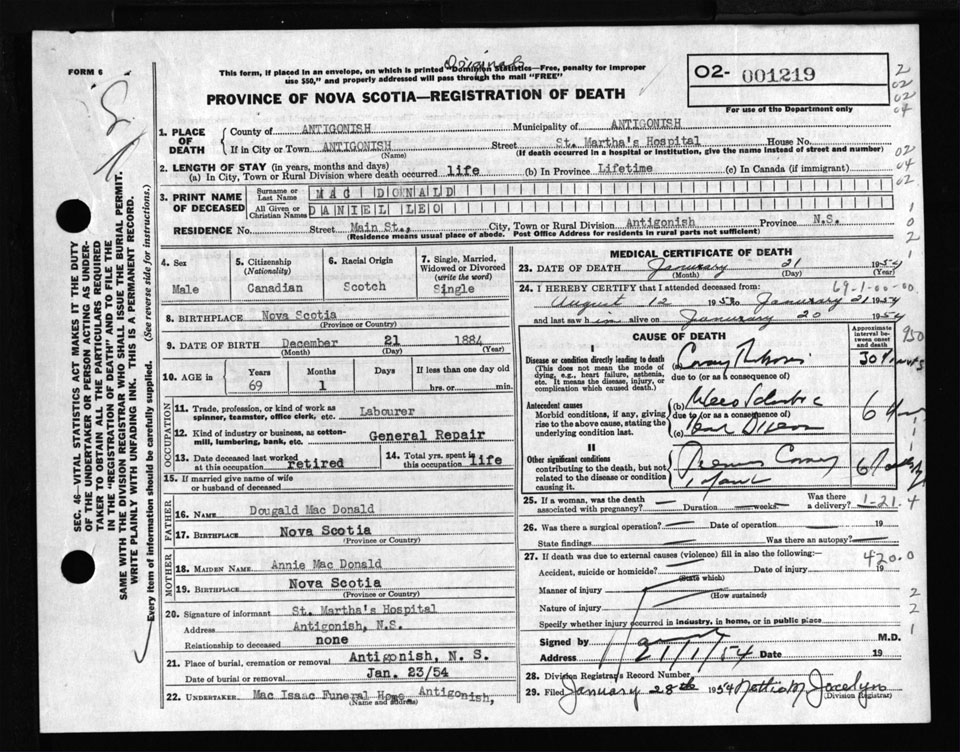 FORM 6
Original
This form, if placed in an envelope, on which is printed "Dominion Statistics—Free, penalty for improper
use $50," and properly addressed will pass through the mail "FREE"
O2- 001219
For use of the Department only
PROVINCE OF NOVA SCOTIA—REGISTRATION OF DEATH
2
02
02
04
02
04
02
1
0
2
1
1. PLACE OF DEATH
County of ANTIGONISH Municipality of ANTIGONISH
If in City or Town ANTIGONISH Street St. Martha's Hospital House No.
(Name) (If death occurred in a hospital or institution, give the name instead of street and number)
2. LENGTH OF STAY (in years, months and days)
(a) In City, Town or Rural Division where death occurred life (b) In Province Lifetime (c) In Canada (if immigrant)
3. PRINT NAME OF DECEASED
Surname or Last Name MAC DONALD
All Given or Christian Names DANIEL LEO
RESIDENCE No. Street Main St., City, Town or Rural Division Antigonish Province N.S.
(Residence means usual place of abode. Post Office Address for residents in rural parts not sufficient)
4. Sex
Male
5. Citizenship
(Nationality)
Canadian
6. Racial Origin
Scotch
7. Single, Married, Widowed or Divorced
(write the word)
Single
8. BIRTHPLACE Nova Scotia
(Province or Country)
9. DATE OF BIRTH December 21 1884
(Month) (Day) (Year)
10. AGE in
Years Months Days If less than one day old
69 1 hrs. or min.
OCCUPATION
11. Trade, profession, or kind of work as
spinner, teamster, office clerk, etc. Labourer
12. Kind of industry or business, as cotton-
mill, lumbering, bank, etc. General Repair
13. Date deceased last worked
at this occupation retired
14. Total yrs. spent in
this occupation life
15. If married give name of wife
or husband of deceased
FATHER
16. NAME Dougald Mac Donald
17. BIRTHPLACE Nova Scotia
(Province or Country)
MOTHER
18. MAIDEN NAME Annie Mac Donald
19. BIRTHPLACE Nova Scotia
(Province or Country)
20. Signature of informant St. Martha's Hospital
Address Antigonish, N.S.
Relationship to deceased none
21. Place of burial, cremation or removal Antigonish, N. S.
Date of burial or removal Jan. 23/54
22. UNDERTAKER Mac Isaac Funeral Home, Antigonish,
(Name and address)
MEDICAL CERTIFICATE OF DEATH
23. DATE OF DEATH Janurary 21 1954
(Month) (Day) (Year)
69-1-00-00
24. I HEREBY CERTIFY that I attended deceased from:
August 12 1950 to Janurary 21 1954
and last saw him alive on Janurary 20 1954
CAUSE OF DEATH
Approximate interval between onset and death
950
I
Disease or condition directly leading to death
(This does not mean the mode of
dying, e.g., heart failure, asthenia,
etc. It means the disease, injury, or
complication which caused death.)
(a)
due to (or as a consequence of)
Antecedent causes
Morbid conditions, if any, giving
rise to the above cause, stating the
underlying condition last.
(b)
due to (or as a consequence of)
(c)
II
Other significant conditions
contributing to the death, but not
related to the disease or condition
causing it.
25. If a woman, was the death
associated with pregnancy? Duration weeks Was there a delivery?
1-21.4
26. Was there a surgical operation? Date of operation 19
State findings Was there an autopsy?
27. If death was due to external causes (violence) fill in also the following:
420.0
Accident, suicide or homicide? Date of injury 19
(State which)
Manner of injury
(How sustained)
Nature of injury
Specify whether injury occurred in industry, in home, or in public place
2
2
1
Signed by M.D.
21/1/54
Address Date 19
28. Division Registrar's Record Number
29. Filed January 28th 1954 Nettie M Jocelyn
(Division Registrar)
SEC. 46—VITAL STATISTICS ACT MAKES IT THE DUTY
OF THE UNDERTAKER OR PERSON ACTING AS UNDER-
TAKER TO OBTAIN ALL THE PARTICULARS REQUIRED
IN THE "REGISTRATION OF DEATH" AND TO FILE THE
SAME WITH THE DIVISION REGISTRAR WHO SHALL ISSUE THE BURIAL PERMIT.
WRITE PLAINLY WITH UNFADING INK. THIS IS A PERMANENT RECORD.
Every item of information should be carefully supplied. (See reverse side for instructions.)